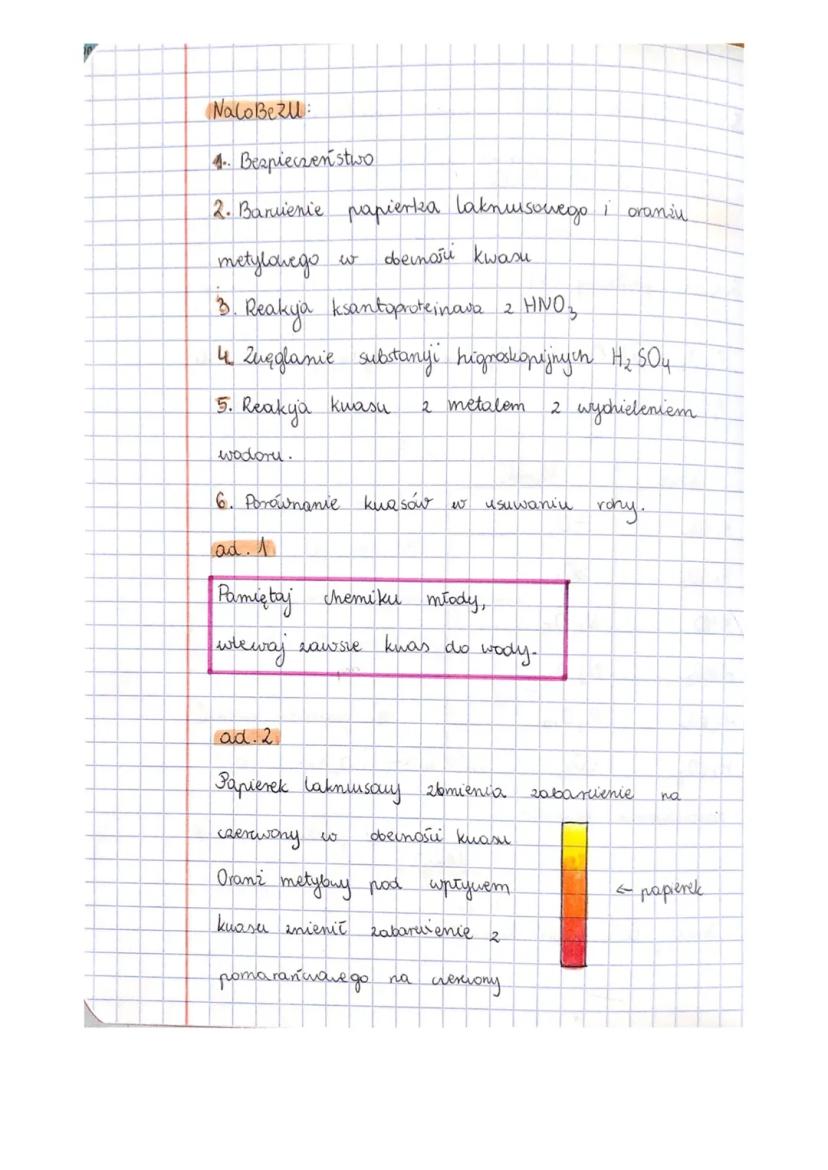 NaCoBeZU:
1. Bezpieczeństwo
2. Barwienie papierka lakmusowego i oranżu
metylowego w obecności kwasu
3. Reakcja ksantoproteinowa z HNO₃
4. Zwęglanie substancji higroskopijnych H₂SO₄
5. Reakcja kwasu z metalem z wydzieleniem
wodoru.
6. Porównanie kwasów w usuwaniu rdzy.
ad. 1
Pamiętaj chemiku młody,
wlewaj zawsze kwas do wody.
ad. 2
Papierek lakmusowy zbmienia zabarwienie na
czerwony w obecności kwasu
Oranż metylowy pod wpływem
← papierek
kwasu zmienił zabarwienie z
pomarańczowego na czerwony